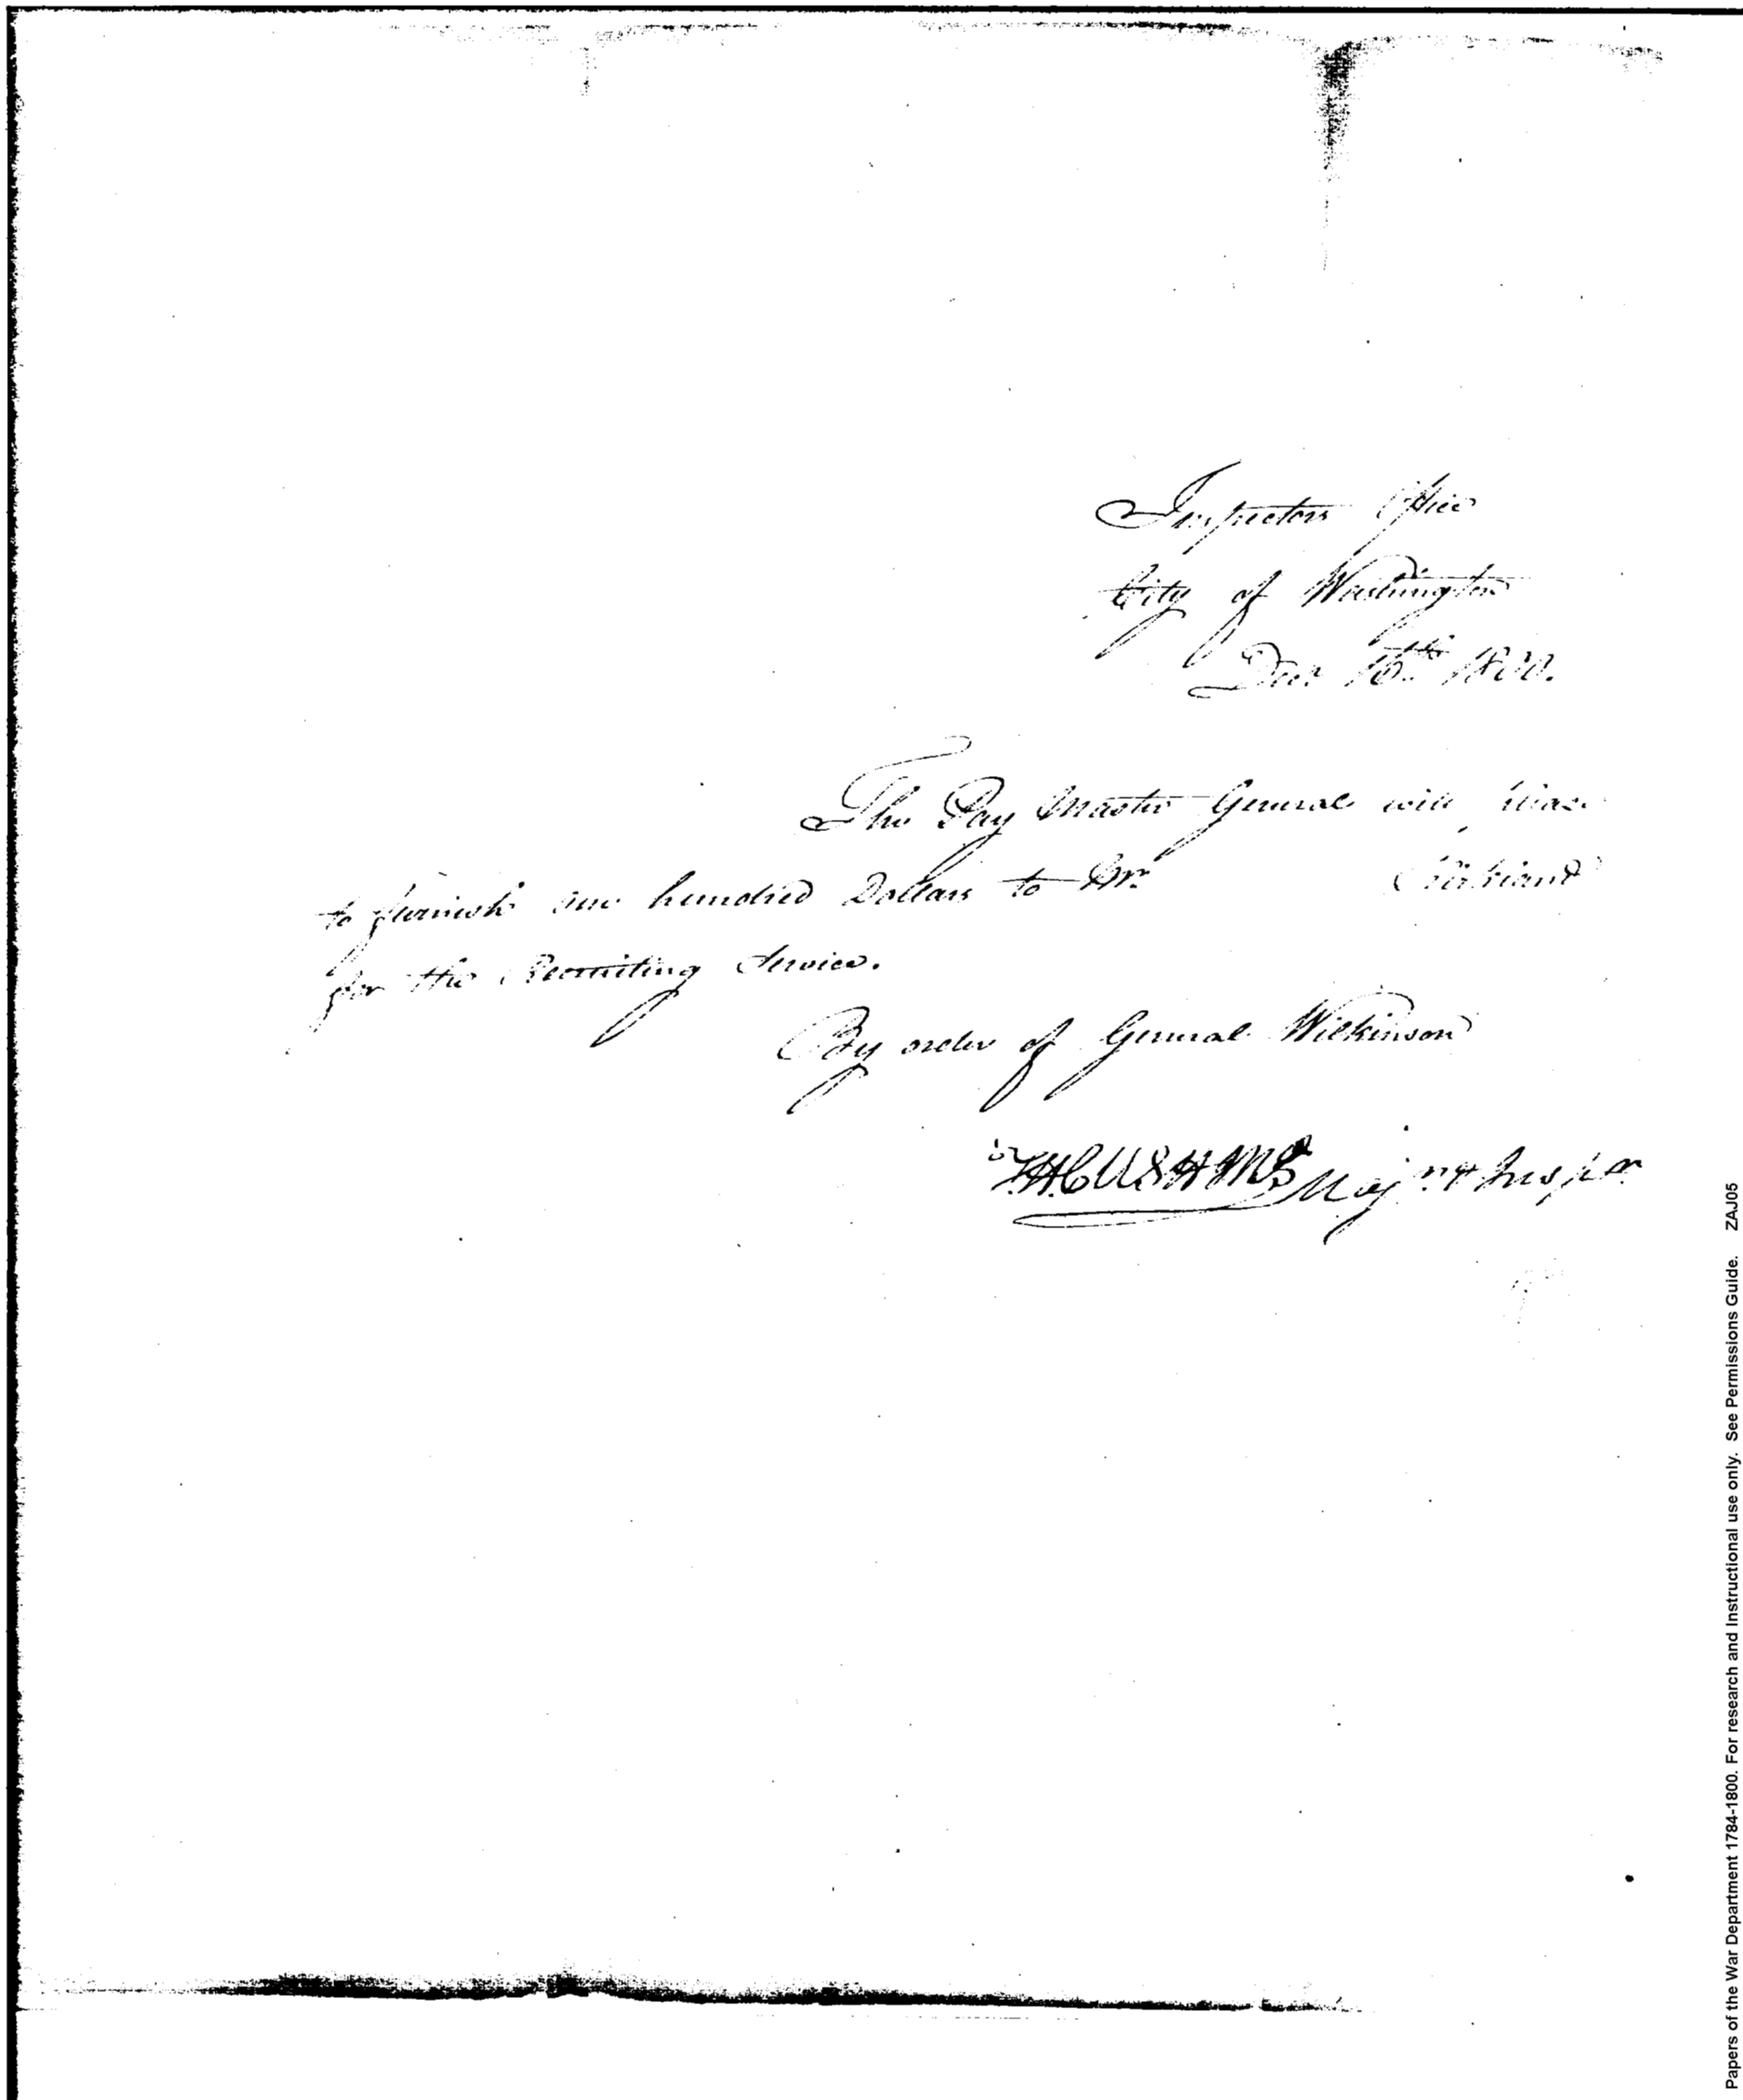 Inspectors Office
City of Washington
Decr 16th 1800.
The Pay Master General will please
to furnish one hundred Dollars to Mr.
for the Recruiting Service.
By order of General Wilkinson
T.H. CUSHING Majr & Inspr
Papers of the War Department 1784-1800. For research and Instructional use only. See Permissions Guide. ZAJ05